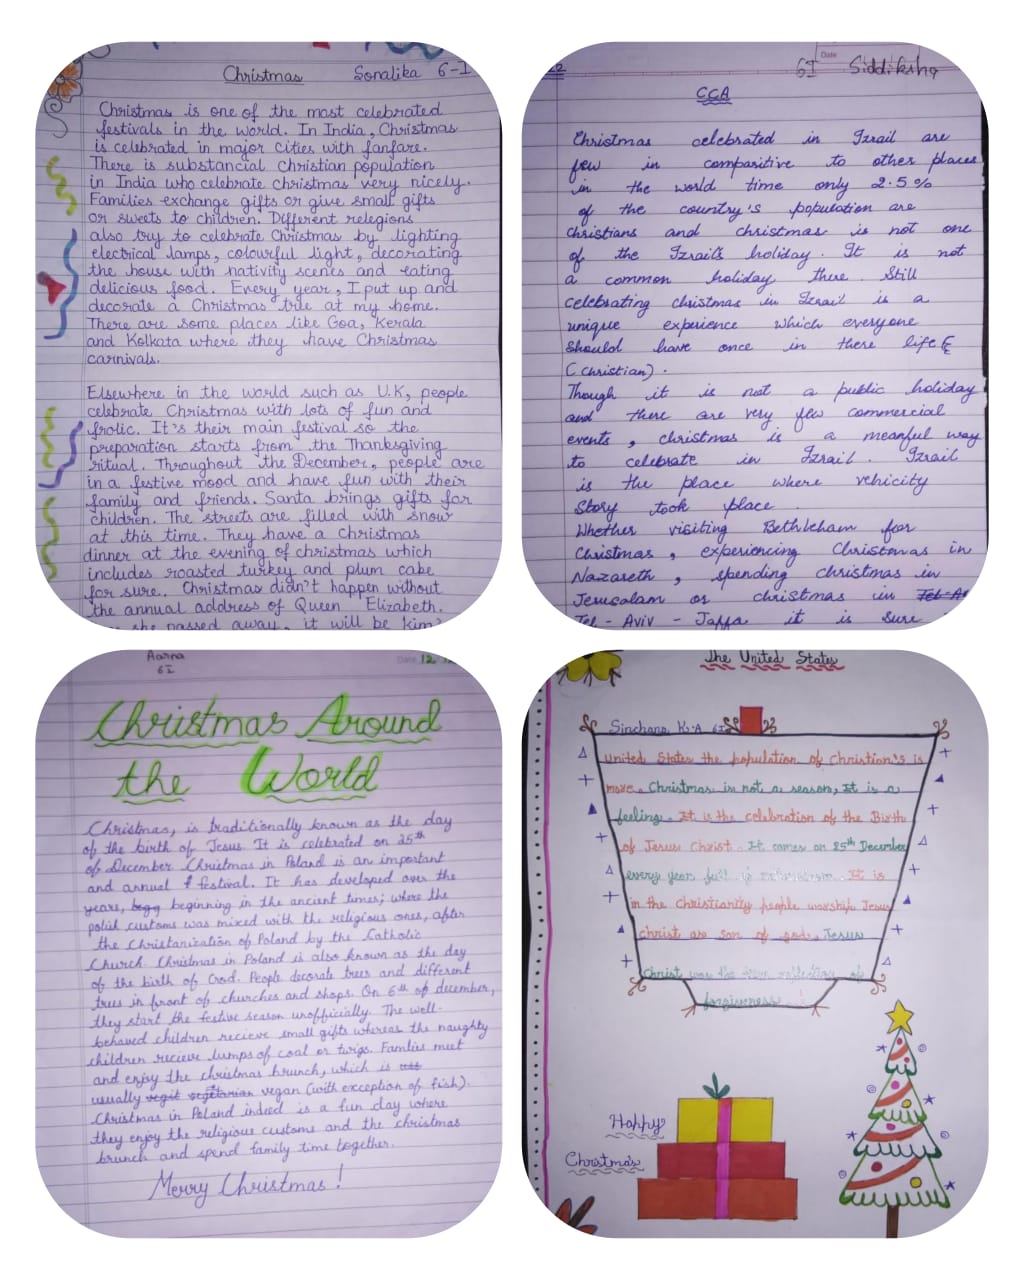 Christmas Sonalika 6-I
Christmas is one of the most celebrated
festivals in the world. In India, Christmas
is celebrated in major cities with fanfare.
There is substancial Christian population
in India who celebrate christmas very nicely.
Families exchange gifts or give small gifts
or sweets to children. Different relegions
also try to celebrate Christmas by lighting
electrical lamps, colourful light, decorating
the house with nativity scenes and eating
delicious food. Every year, I put up and
decorate a Christmas tree at my home.
There are some places like Goa, Kerala
and Kolkata where they have Christmas
carnivals.
Elsewhere in the world such as U.K, people
celebrate Christmas with lots of fun and
frolic. It's their main festival so the
preparation starts from the Thanksgiving
ritual. Throughout the December, people are
in a festive mood and have fun with their
family and friends. Santa brings gifts for
children. The streets are filled with snow
at this time. They have a Christmas
dinner at the evening of christmas which
includes roasted turkey and plum cake
for sure. Christmas didn't happen without
the annual address of Queen Elizabeth.
she passed away, it will be kim's
Date
6I Siddiksha
CCA
Christmas celebrated in Izrail are
few in comparitive to other places
in the world time only 2.5%
of the country's population are
christians and christmas is not one
of the Izrail's holiday. It is not
a common holiday there. Still
celebrating christmas in Izrail is a
unique experience which everyone
should have once in there life
(christian).
Though it is not a public holiday
and there are very few commercial
events, christmas is a meanful way
to celebrate in Izrail. Izrail
is the place where vehicity
story took place.
Whether visiting Bethleham for
Christmas, experiencing Christmas in
Nazareth, spending christmas in
Jerusalam or christmas in
Tel-Aviv-Jaffa it is sure
Aarna
6I
Date 12
Christmas Around
the World
Christmas, is traditionally known as the day
of the birth of Jesus. It is celebrated on 25th
of December. Christmas in Poland is an important
and annual festival. It has developed over the
years, beginning in the ancient times; where the
polish customs was mixed with the religious ones, after
the Christanization of Poland by the Catholic
Church. Christmas in Poland is also known as the day
of the birth of God. People decorate trees and different
trees in front of churches and shops. On 6th of december,
they start the festive season unofficially. The well-
behaved children recieve small gifts whereas the naughty
children recieve lumps of coal or twigs. Families meet
and enjoy the christmas brunch, which is
usually vegan (with exception of fish).
Christmas in Poland indeed is a fun day where
they enjoy the religious customs and the christmas
brunch and spend family time together.
Merry Christmas!
The United States
Sinchana K.A 6I
United States the population of Christian's is
more. Christmas is not a season, It is a
feeling. It is the celebration of the Birth
of Jesus Christ. It comes on 25th December
every year full of It is
in the Christianity people worship Jesus
Christ as son of god. Jesus
Christ was the of
forgiveness.
Happy
Christmas